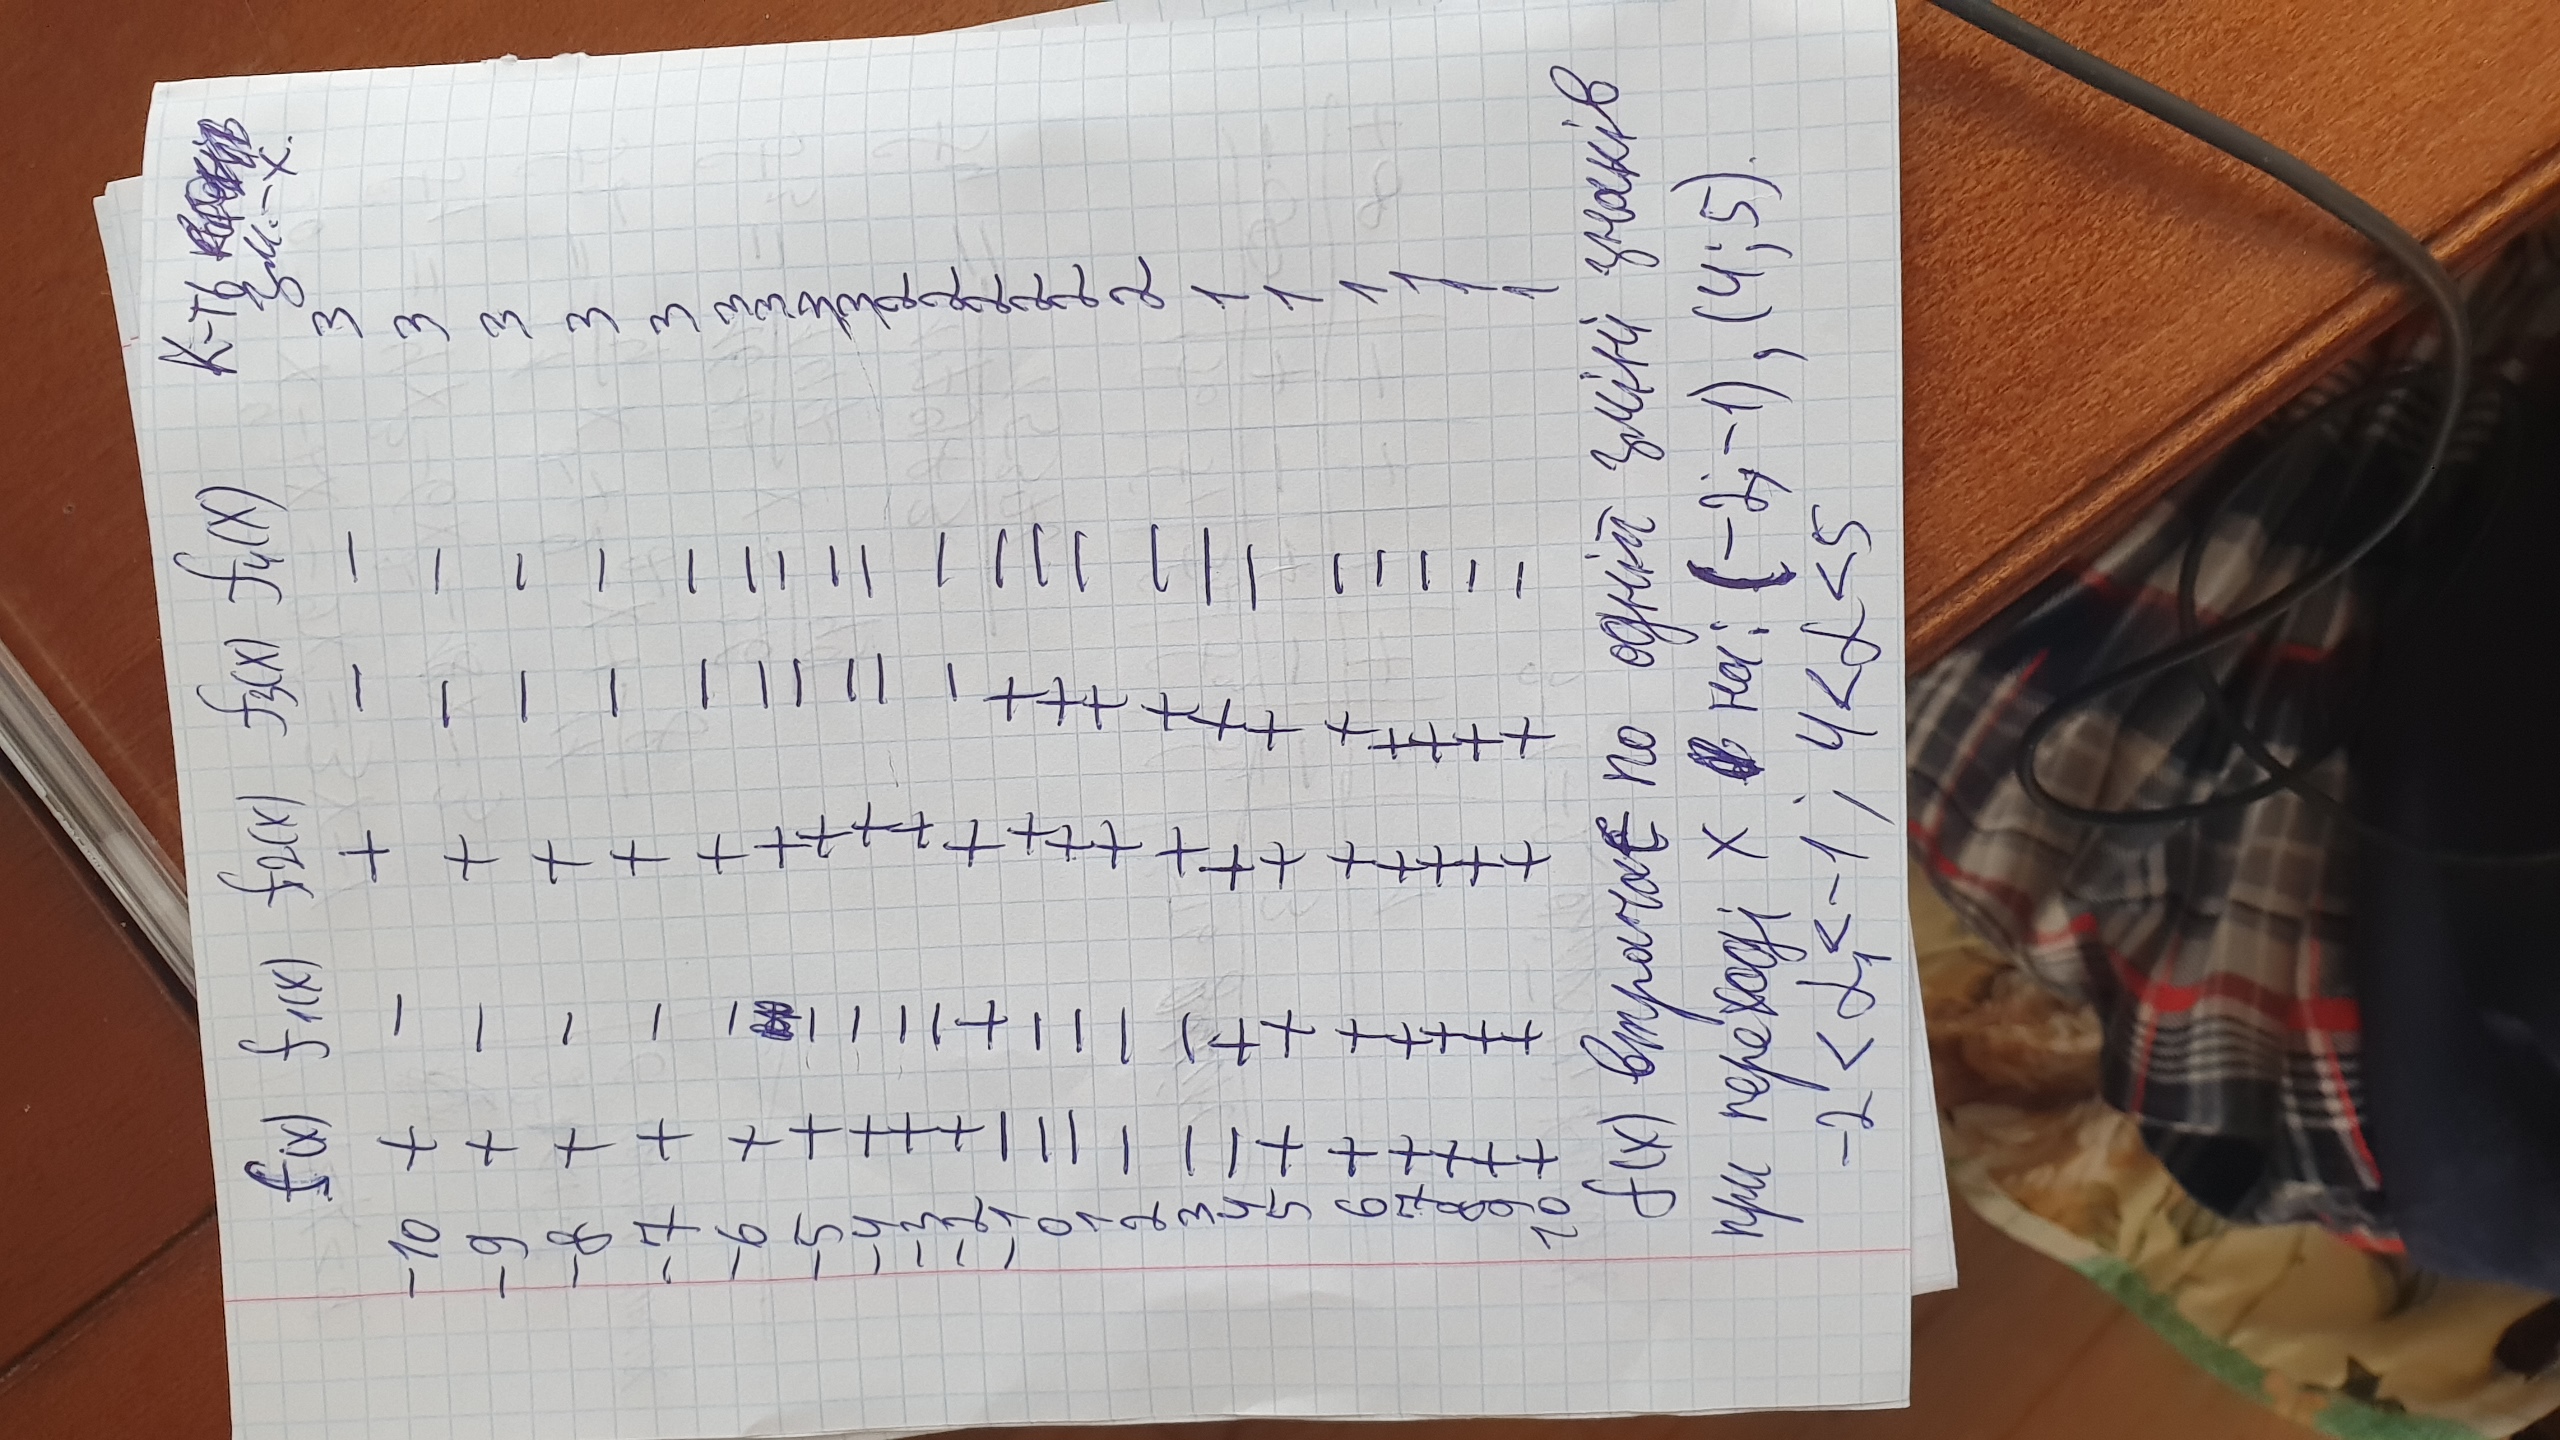 f(x) f1(x) f2(x) f3(x) f4(x) К-ть
зм.-х.
-10 + - + - - 3
-9 + - + - - 3
-8 + - + - - 3
-7 + - + - - 3
-6 + - + - - 3
-5 + - + - - 3
-4 + - + - - 3
-3 + - + - - 3
-2 + - + - - 3
-1 - + + - - 2
0 - - + + - 2
1 - - + + - 2
2 - - + + - 2
3 - - + + - 2
4 - + + + - 2
5 + + + + - 1
6 + + + + - 1
7 + + + + - 1
8 + + + + - 1
9 + + + + - 1
10 + + + + - 1
f(x) втрачає по одній зміні знаків
при переході x на: (-2;-1), (4;5).
-2 < α₁ < -1; 4 < α < 5